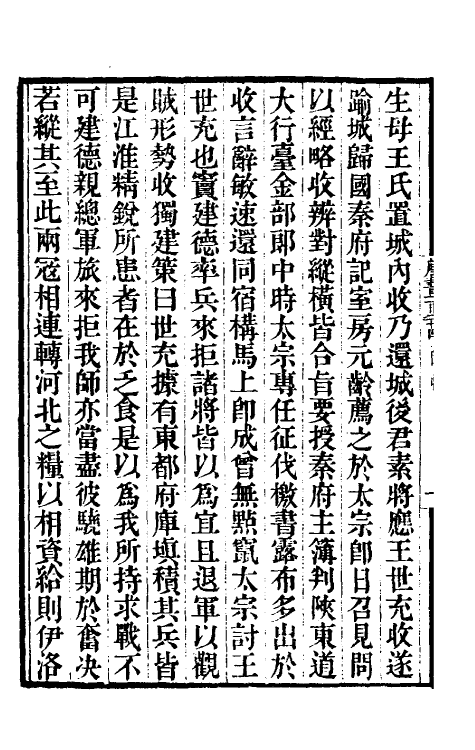 生母王氏置城內收乃還城後君素將應王世充收遂
踰城歸國秦府記室房元齡薦之於太宗卽日召見問
以經略收辨對縱橫皆合旨要授秦府主簿判陝東道
大行臺金部郎中時太宗專任征伐檄書露布多出於
收言辭敏速還同宿構馬上卽成曾無點竄太宗討王
世充也竇建德率兵來拒諸將皆以爲宜且退軍以觀
賊形勢收獨建策曰世充據有東都府庫塡積其兵皆
是江淮精銳所患者在於乏食是以爲我所持求戰不
可建德親總軍旅來拒我師亦當盡彼驍雄期於奮决
若縱其至此兩冦相連轉河北之糧以相資給則伊洛